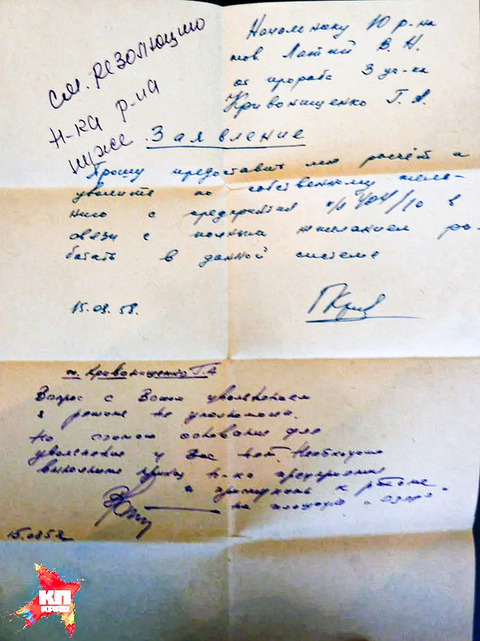 см. резолюцию
н-ка р-на
ниже
Начальнику 10 р-на
тов Лаптий В. Н.
от прораба 3 уч-ка
Кривонищенко Г. А.
Заявление
Прошу предоставить мне расчёт и
уволить по собственному жела-
нию с предприятия п/я 404/10 в
связи с полным желанием ра-
ботать в данной системе
15.09.58.
т. Кривонищенко Г. А
Вопрос с Вашим увольнением
я решать не уполномочен.
Но считаю основание для
увольнения у Вас нет. Необходимо
выполнить приказ н-ка предприятия
и приступить к работе
на площадке
КП
KP.RU